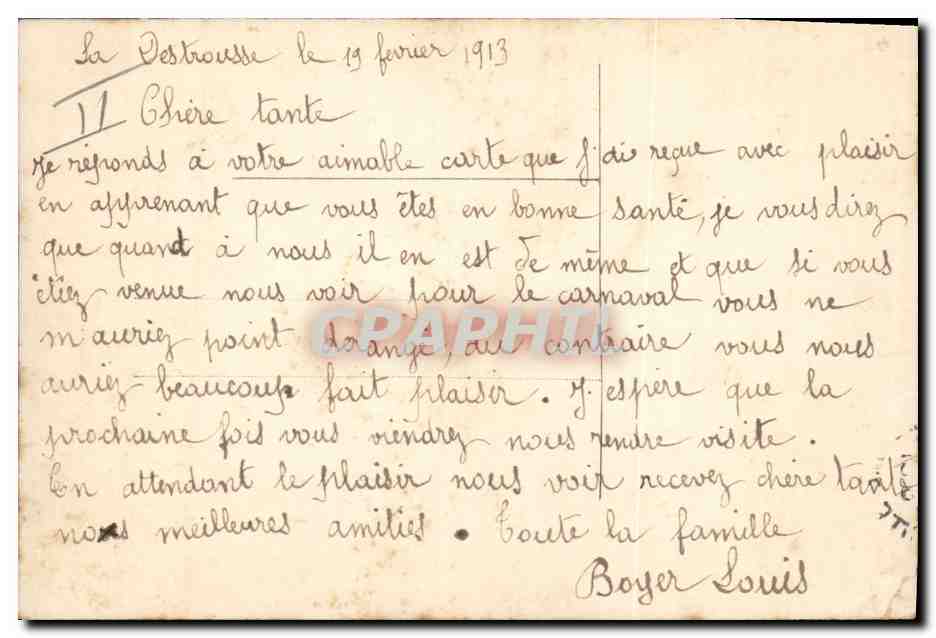 La Destrousse le 19 fevrier 1913
II Chère tante
Je réponds à votre aimable carte que j'ai reçue avec plaisir
en apprenant que vous êtes en bonne santé, je vous direz
que quand à nous il en est de même et que si vous
étiez venue nous voir pour le carnaval vous ne
m'auriez point dorangé, au contraire vous nous
auriez beaucoup fait plaisir. J'espère que la
prochaine fois vous viendrez nous rendre visite.
En attendant le plaisir nous voir recevez chère tante
nos meilleures amities. Toute la famille
Boyer Louis
CPAPHIL